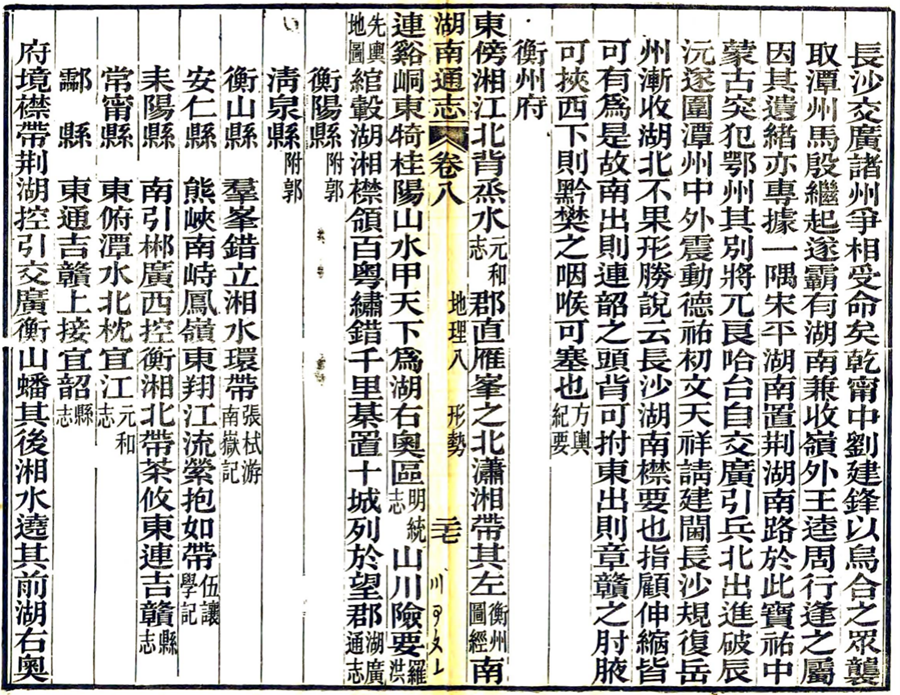 長沙交廣諸州爭相受命矣乾甯中劉建鋒以烏合之眾襲
取潭州馬殷繼起遂霸有湖南兼收嶺外王逵周行逢之屬
因其遺緒亦專據一隅宋平湖南置荆湖南路於此寶祐中
蒙古突犯鄂州其別將兀良哈台自交廣引兵北出進破辰
沅遂圍潭州中外震動德祐初文天祥請建閫長沙規復岳
州漸收湖北不果形勝說云長沙湖南襟要也指顧伸縮皆
可有為是故南出則連韶之頭背可拊東出則章贛之肘腋
可挾西下則黔樊之咽喉可塞也方輿紀要
衡州府
東傍湘江北背烝水元和志郡直雁峯之北瀟湘帶其左衡州圖經南
湖南通志 卷八 地理八 形勢 毛
連谿峒東犄桂陽山水甲天下為湖右奧區明統志山川險要羅洪
先輿地圖綰轂湖湘襟領百粵繡錯千里碁置十城列於望郡湖廣通志
衡陽縣附郭
清泉縣附郭
衡山縣 羣峯錯立湘水環帶張栻游南嶽記
安仁縣 熊峽南峙鳳嶺東翔江流縈抱如帶伍讓學記
耒陽縣 南引郴廣西控衡湘北帶茶攸東連吉贛縣志
常甯縣 東俯潭水北枕宜江元和志
酃縣 東通吉贛上接宜韶縣志
府境襟帶荆湖控引交廣衡山蟠其後湘水遶其前湖右奧